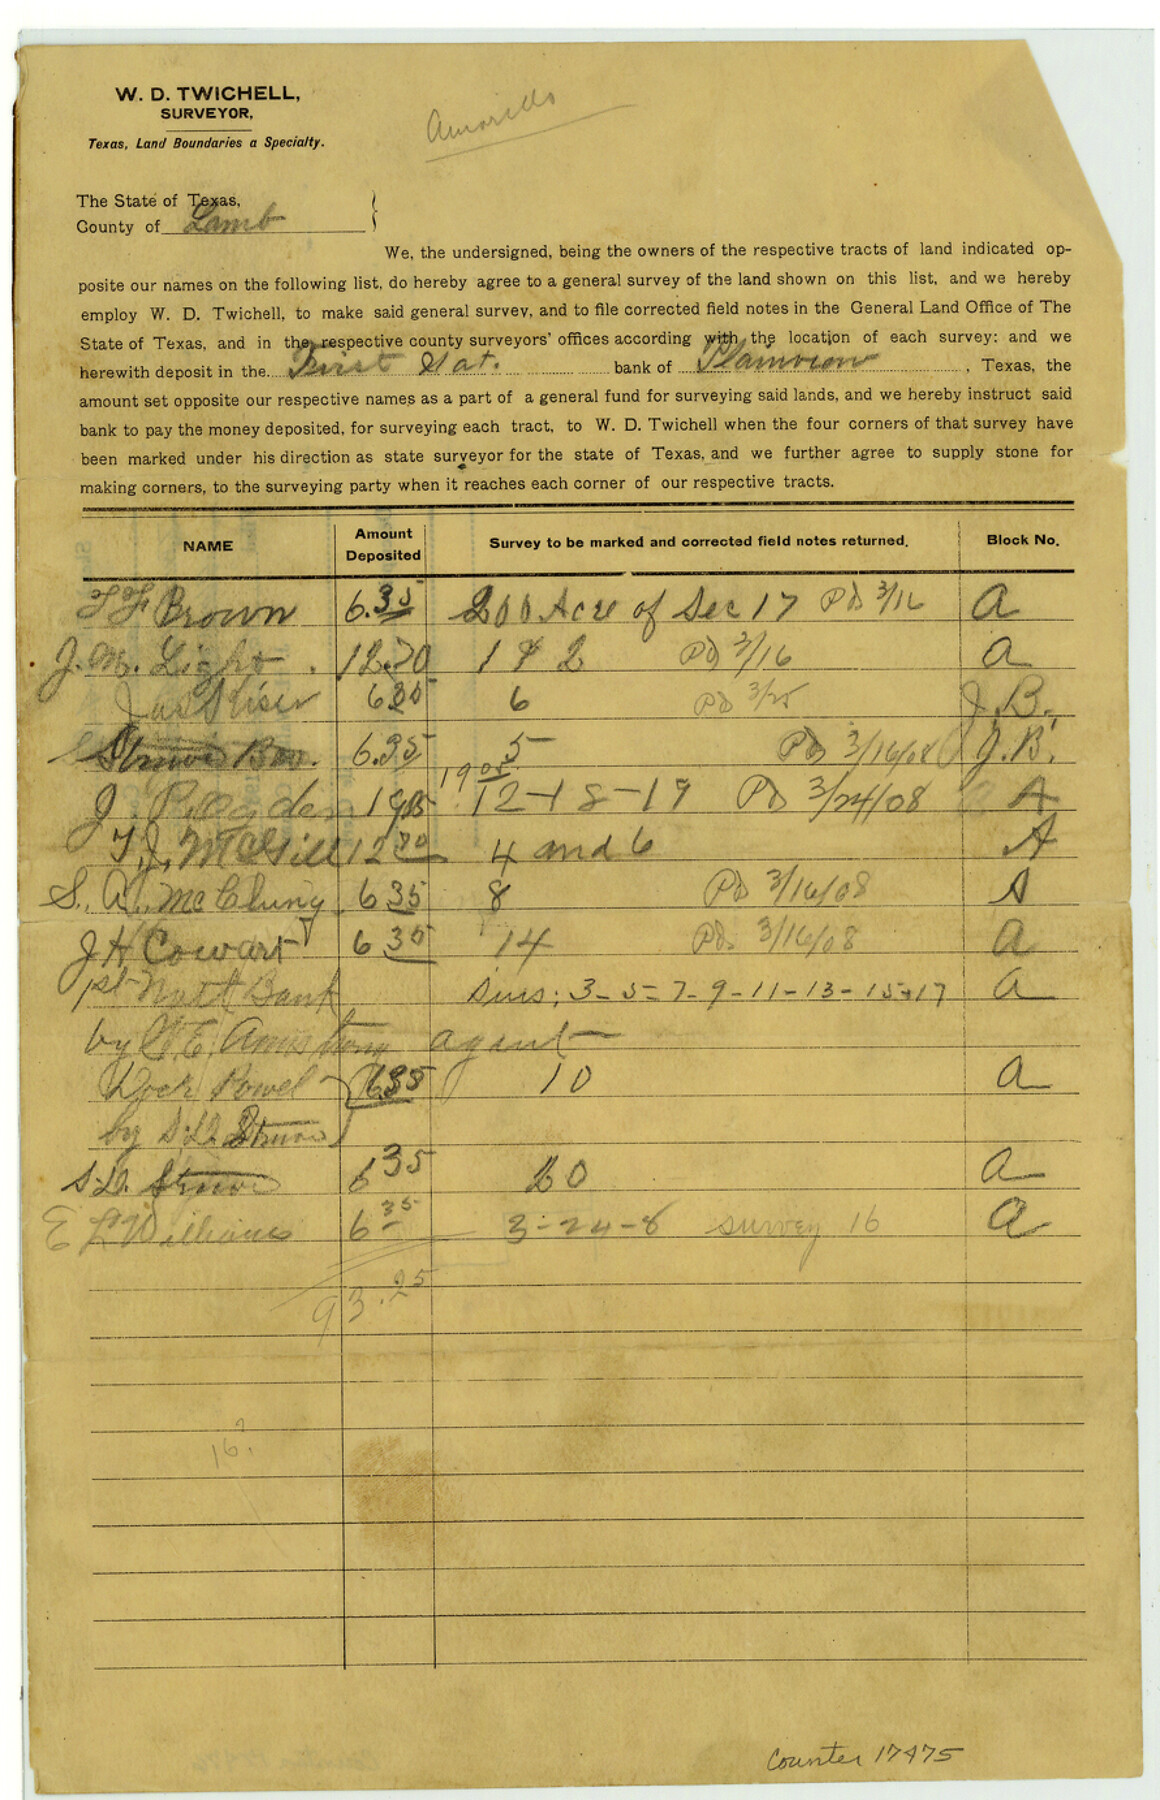 W. D. TWICHELL,
SURVEYOR,
Texas, Land Boundaries a Specialty.
Amarillo
The State of Texas,
County of Lamb }
We, the undersigned, being the owners of the respective tracts of land indicated op-
posite our names on the following list, do hereby agree to a general survey of the land shown on this list, and we hereby
employ W. D. Twichell, to make said general survey, and to file corrected field notes in the General Land Office of The
State of Texas, and in the respective county surveyors' offices according with the location of each survey: and we
herewith deposit in the First Nat. bank of Plainview, Texas, the
amount set opposite our respective names as a part of a general fund for surveying said lands, and we hereby instruct said
bank to pay the money deposited, for surveying each tract, to W. D. Twichell when the four corners of that survey have
been marked under his direction as state surveyor for the state of Texas, and we further agree to supply stone for
making corners, to the surveying party when it reaches each corner of our respective tracts.
NAME Amount Deposited Survey to be marked and corrected field notes returned. Block No.
T F Brown 6.35 200 Acre of Sec 17 Pd 3/16 A
J. M. Light 12.70 1 & 2 Pd 3/16 A
Jas Kiser 6 35 6 Pd 3/25 J. B.
Struve Bro. 6.35 5 Pd 3/16/08 J. B.
J. Ogden 1905 1905 12-18-19 Pd 3/24/08 A
T. J. McGill 12 70 4 and 6 A
S. A. McClung 6 35 8 Pd 3/16/08 A
J H Cowart 6 35 14 Pd. 3/16/08 A
1st Natl Bank Surs; 3-5-7-9-11-13-15+17 A
by E. Armstrong agent
Dock Powel 6 35 10 A
by S. D. Struve
S. D. Struve 6 35 20 A
E L Williams 6 35 3-24-8 survey 16 A
93.25
16?
Counter 17475